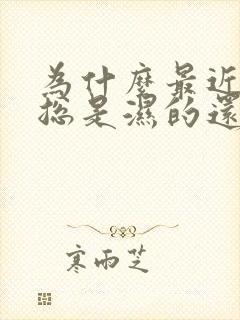 为什麼最近
總是濕的還
寒雨芝